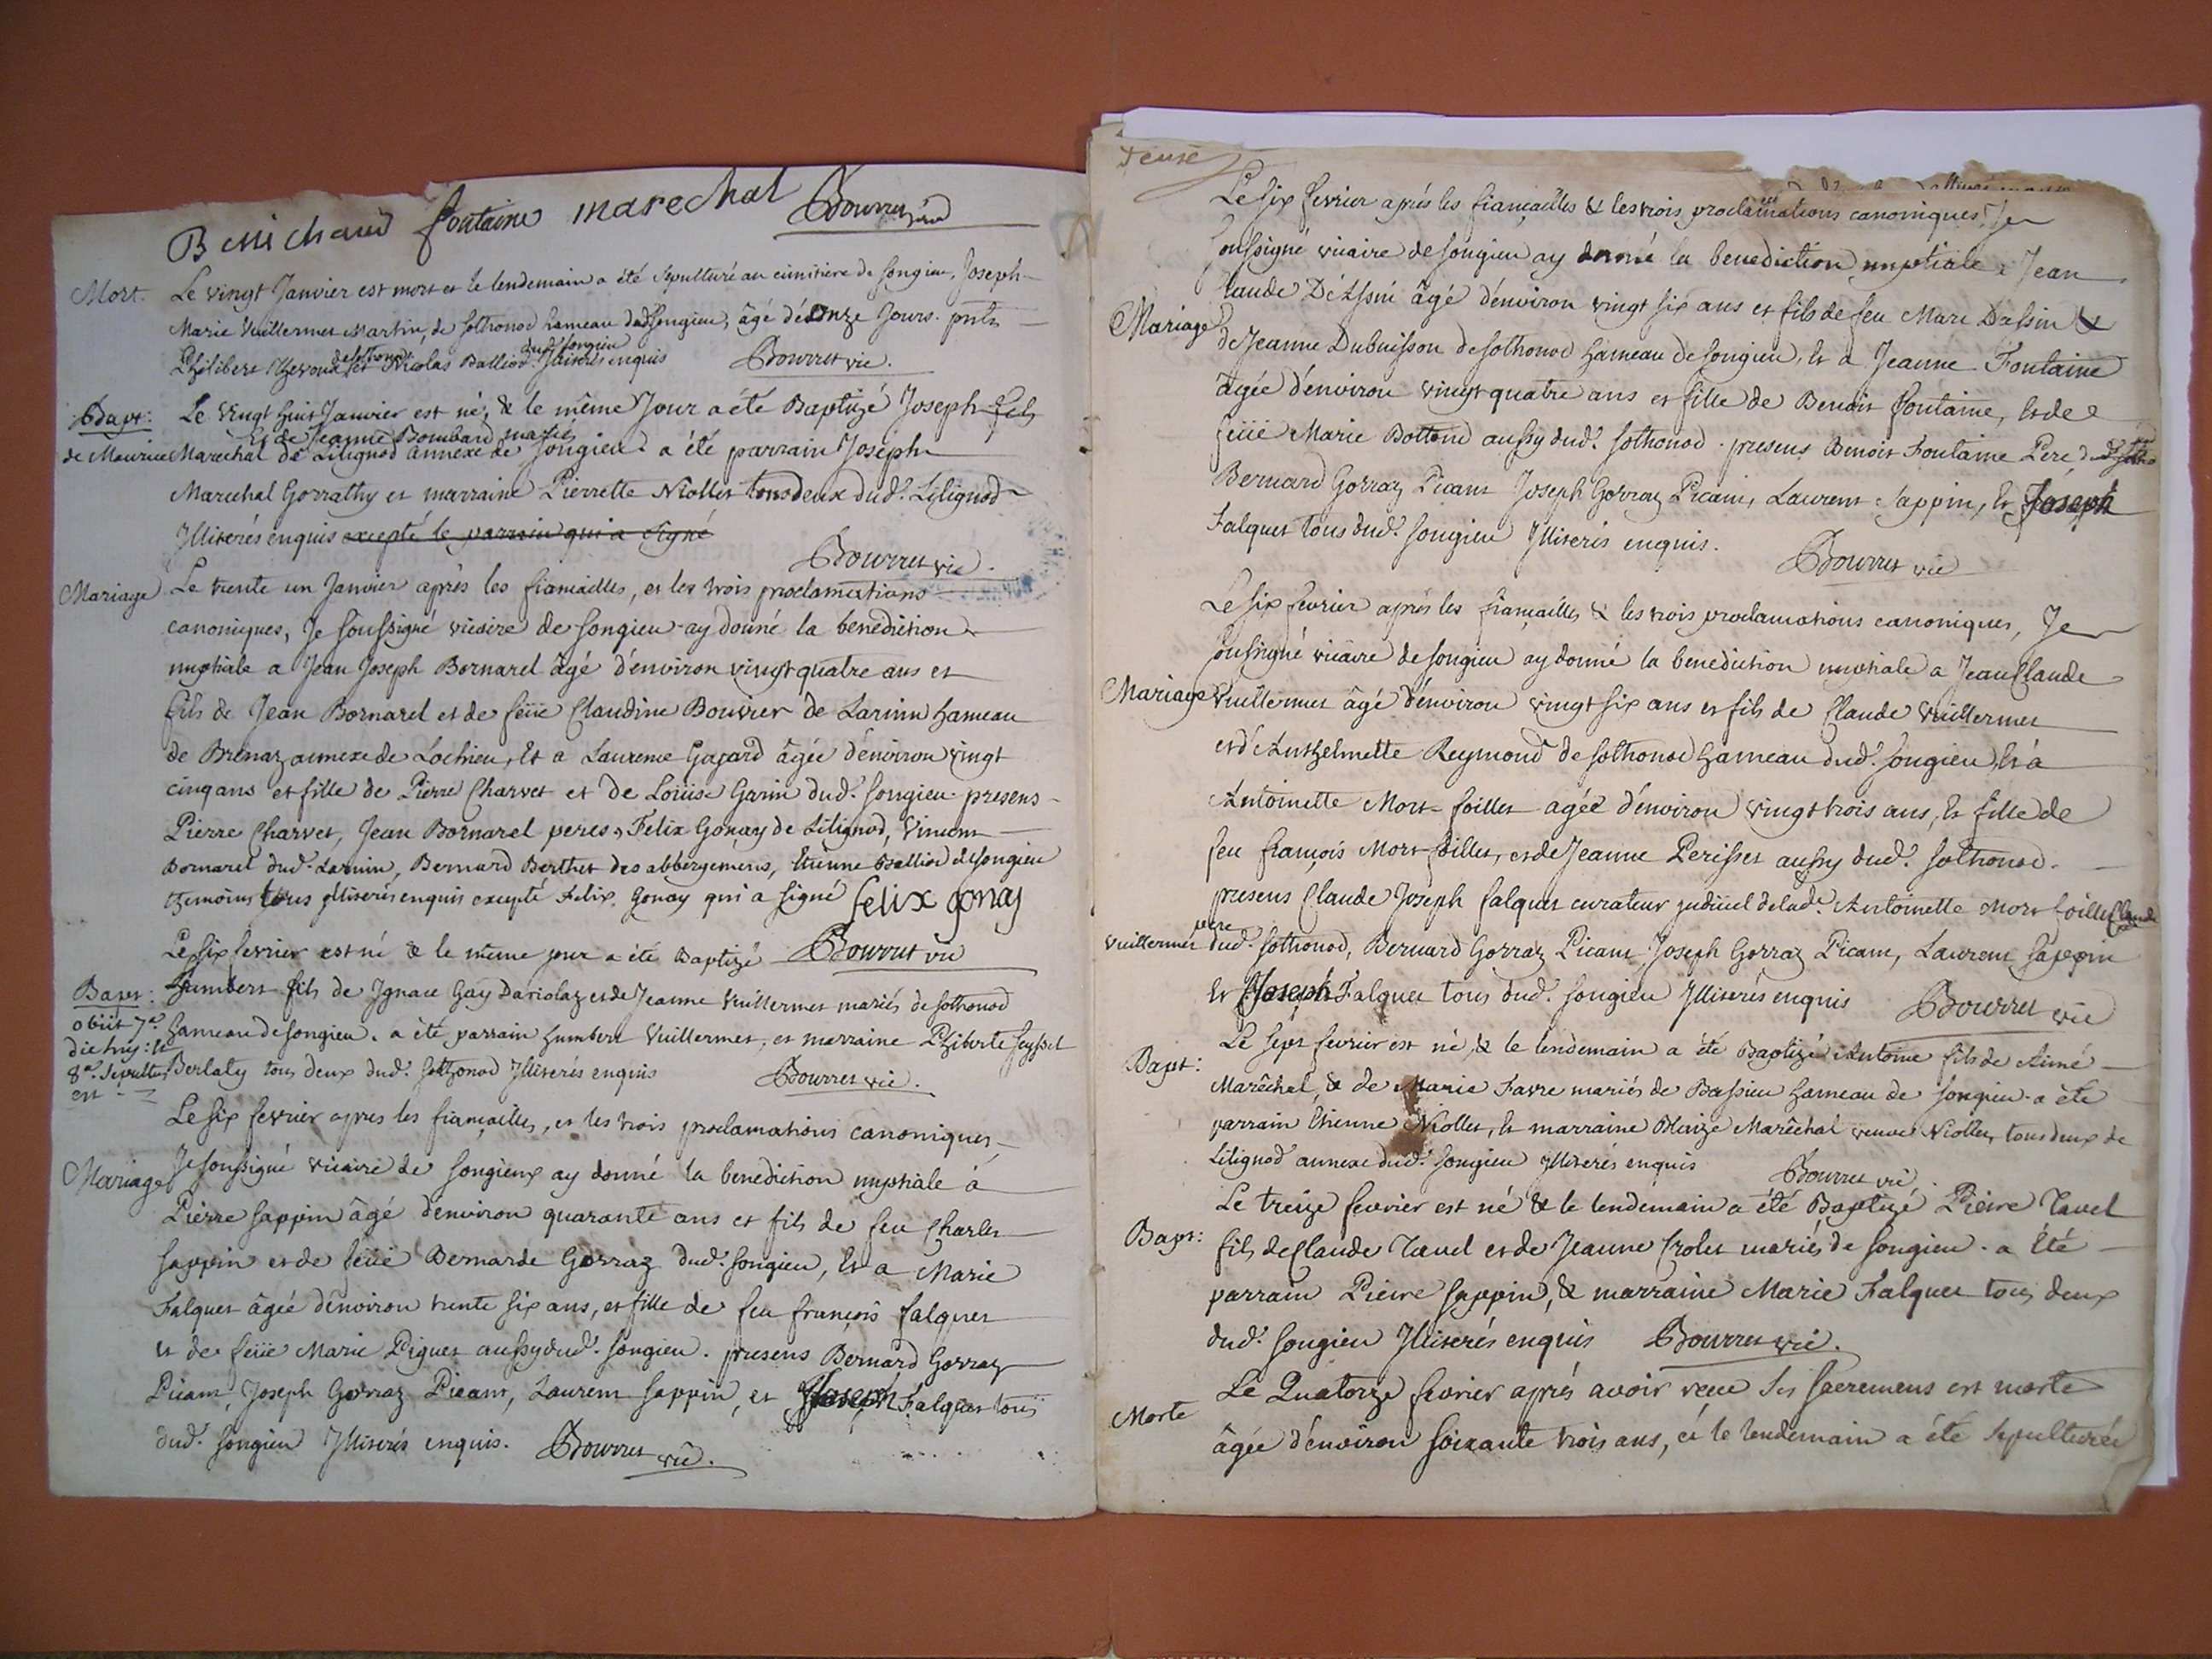 B Michaud fontaine marechal Bourret vic
Mort. Le vingt Janvier est mort et le lendemain a été sepulturé au cimitiere de songieu, Joseph
Marie Vuillermet Martin, de sothonod hameau dud songieu, âgé d'e onze Jours. pnts
de sothonod dud songieu
Philibert et Nicolas Balliod Illiterés enquis Bourret vic.
Bapt: Le vingt huit Janvier est né, & le même Jour a été Baptizé Joseph fils
et de Jeanne Bombard mariés
de Maurice Maréchal de Lilignod annexe de songieu. a été parrain Joseph
Marechal Gorrathy et marraine Pierrette Niollet tous deux dud. Lilignod
Illiterés enquis excepté le parrain qui a signé
Bourret vic.
Mariage Le trente un Janvier après les fiancailles, et les trois proclamations
canoniques, Je soussigné vicaire de songieu ay donné la benediction
nuptiale a Jean Joseph Bornarel âgé d'environ vingt quatre ans et
fils de Jean Bornarel et de feüe Claudine Bouvier de Larinn hameau
de Brenaz annexe de Lochieu, et a Laurence Gagard âgée d'environ vingt
cinq ans et fille de Pierre Charvet et de Loüise Garin dud. songieu. presens
Pierre Charvet, Jean Bornarel peres, Felix Gonay de Lilignod, Vincent
Bornarel dud. Larinn, Bernard Berthet des abbergemens, Etienne Balliod de songieu
themoins tous Illiterés enquis excepté Felix Gonay qui a signé felix gonay
Le six fevrier est né & le même jour a été Baptizé Bourret vic
Bapt: Humbert fils de Ignace Gay Dariolaz et de Jeanne Vuillermet mariés de sothonod
obiit 7a hameau de songieu. a été parrain humbert Vuillermet, et marraine Philiberte Seyssel
die huj: et
8a. sepultus Berlaty tous deux dud. sothonod Illiterés enquis Bourret vic.
est
Le six fevrier apres les fiançailles, et les trois proclamations canoniques,
Mariage Je soussigné vicaire de songieux ay donné la benediction nuptiale à
Pierre sappin âgé d'environ quarante ans et fils de feu Charles
sappin et de feüe Bernarde Gorraz dud. songieu, et a Marie
Falquet âgée d'environ trente six ans, et fille de feu françois falquet
et de feüe Marie Piguet aussy dud. songieu. presens Bernard Gorraz
Picant, Joseph Gorraz Picant, Laurent sappin, et Joseph Falquet tous
dud. songieu Illiterés enquis. Bourret vic.
Le six fevrier aprés les fiançailles & les trois proclamations canoniques, Je
soussigné vicaire de songieu ay donné la benediction nuptiale a Jean
Claude âgé d'environ vingt six ans et fils de feu Marc Dassin &
Mariage de Jeanne Dubuisson de sothonod hameau de songieu, et a Jeanne Fontaine
âgée d'environ vingt quatre ans et fille de Benoit fontaine, et de
feüe Marie Bottond aussy dud. sothonod. presens Benoit Fontaine Pere dud
Bernard Gorraz Picant Joseph Gorraz Picant, Laurent sappin, et Joseph
Falquet tous dud. songieu Illiterés enquis. Bourret vic
Le six fevrier après les fiançailles & les trois proclamations canoniques, Je
soussigné vicaire de songieu ay donné la benediction nuptiale a Jean Claude
Mariage Vuillermet âgé d'environ vingt six ans et fils de Claude Vuillermet
et d'Anthelmette Reymond de sothonod hameau dud. songieu, et à
Antoinette Mort-foillet agée d'environ vingt trois ans, et fille de
feu françois Mort-foillet, et de Jeanne Perisset aussy dud. sothonod.
presens Claude Joseph falquet curateur judiciel de lade. Antoinette Mort foillet Claude
pere
Vuillermet dud. sothonod, Bernard Gorraz Picant Joseph Gorraz Picant, Laurent sappin
et Joseph Falquet tous dud. songieu Illiterés enquis Bourret vic
Le sept fevrier est né, & le lendemain a été Baptizé Antoine fils de Aimé
Bapt: Maréchal, & de Marie Favre mariés de Bassieu hameau de songieu. a été
parrain Etienne Niollet, et marraine Blaize Maréchal veuve Niollet, tous deux de
Lilignod annexe dud. songieu Illiterés enquis Bourret vic.
Le treize fevrier est né & le lendemain a été Baptizé Pierre Tavel
Bapt: fils de Claude Tavel et de Jeanne Crolet mariés de songieu. a été
parrain Pierre sappin, & marraine Marie Falquet tous deux
dud. songieu Illiterés enquis Bourret vic.
Le Quatorze fevrier après avoir receu ses sacremens est morte
Morte âgée d'environ soixante trois ans, et le lendemain a été sepulturée